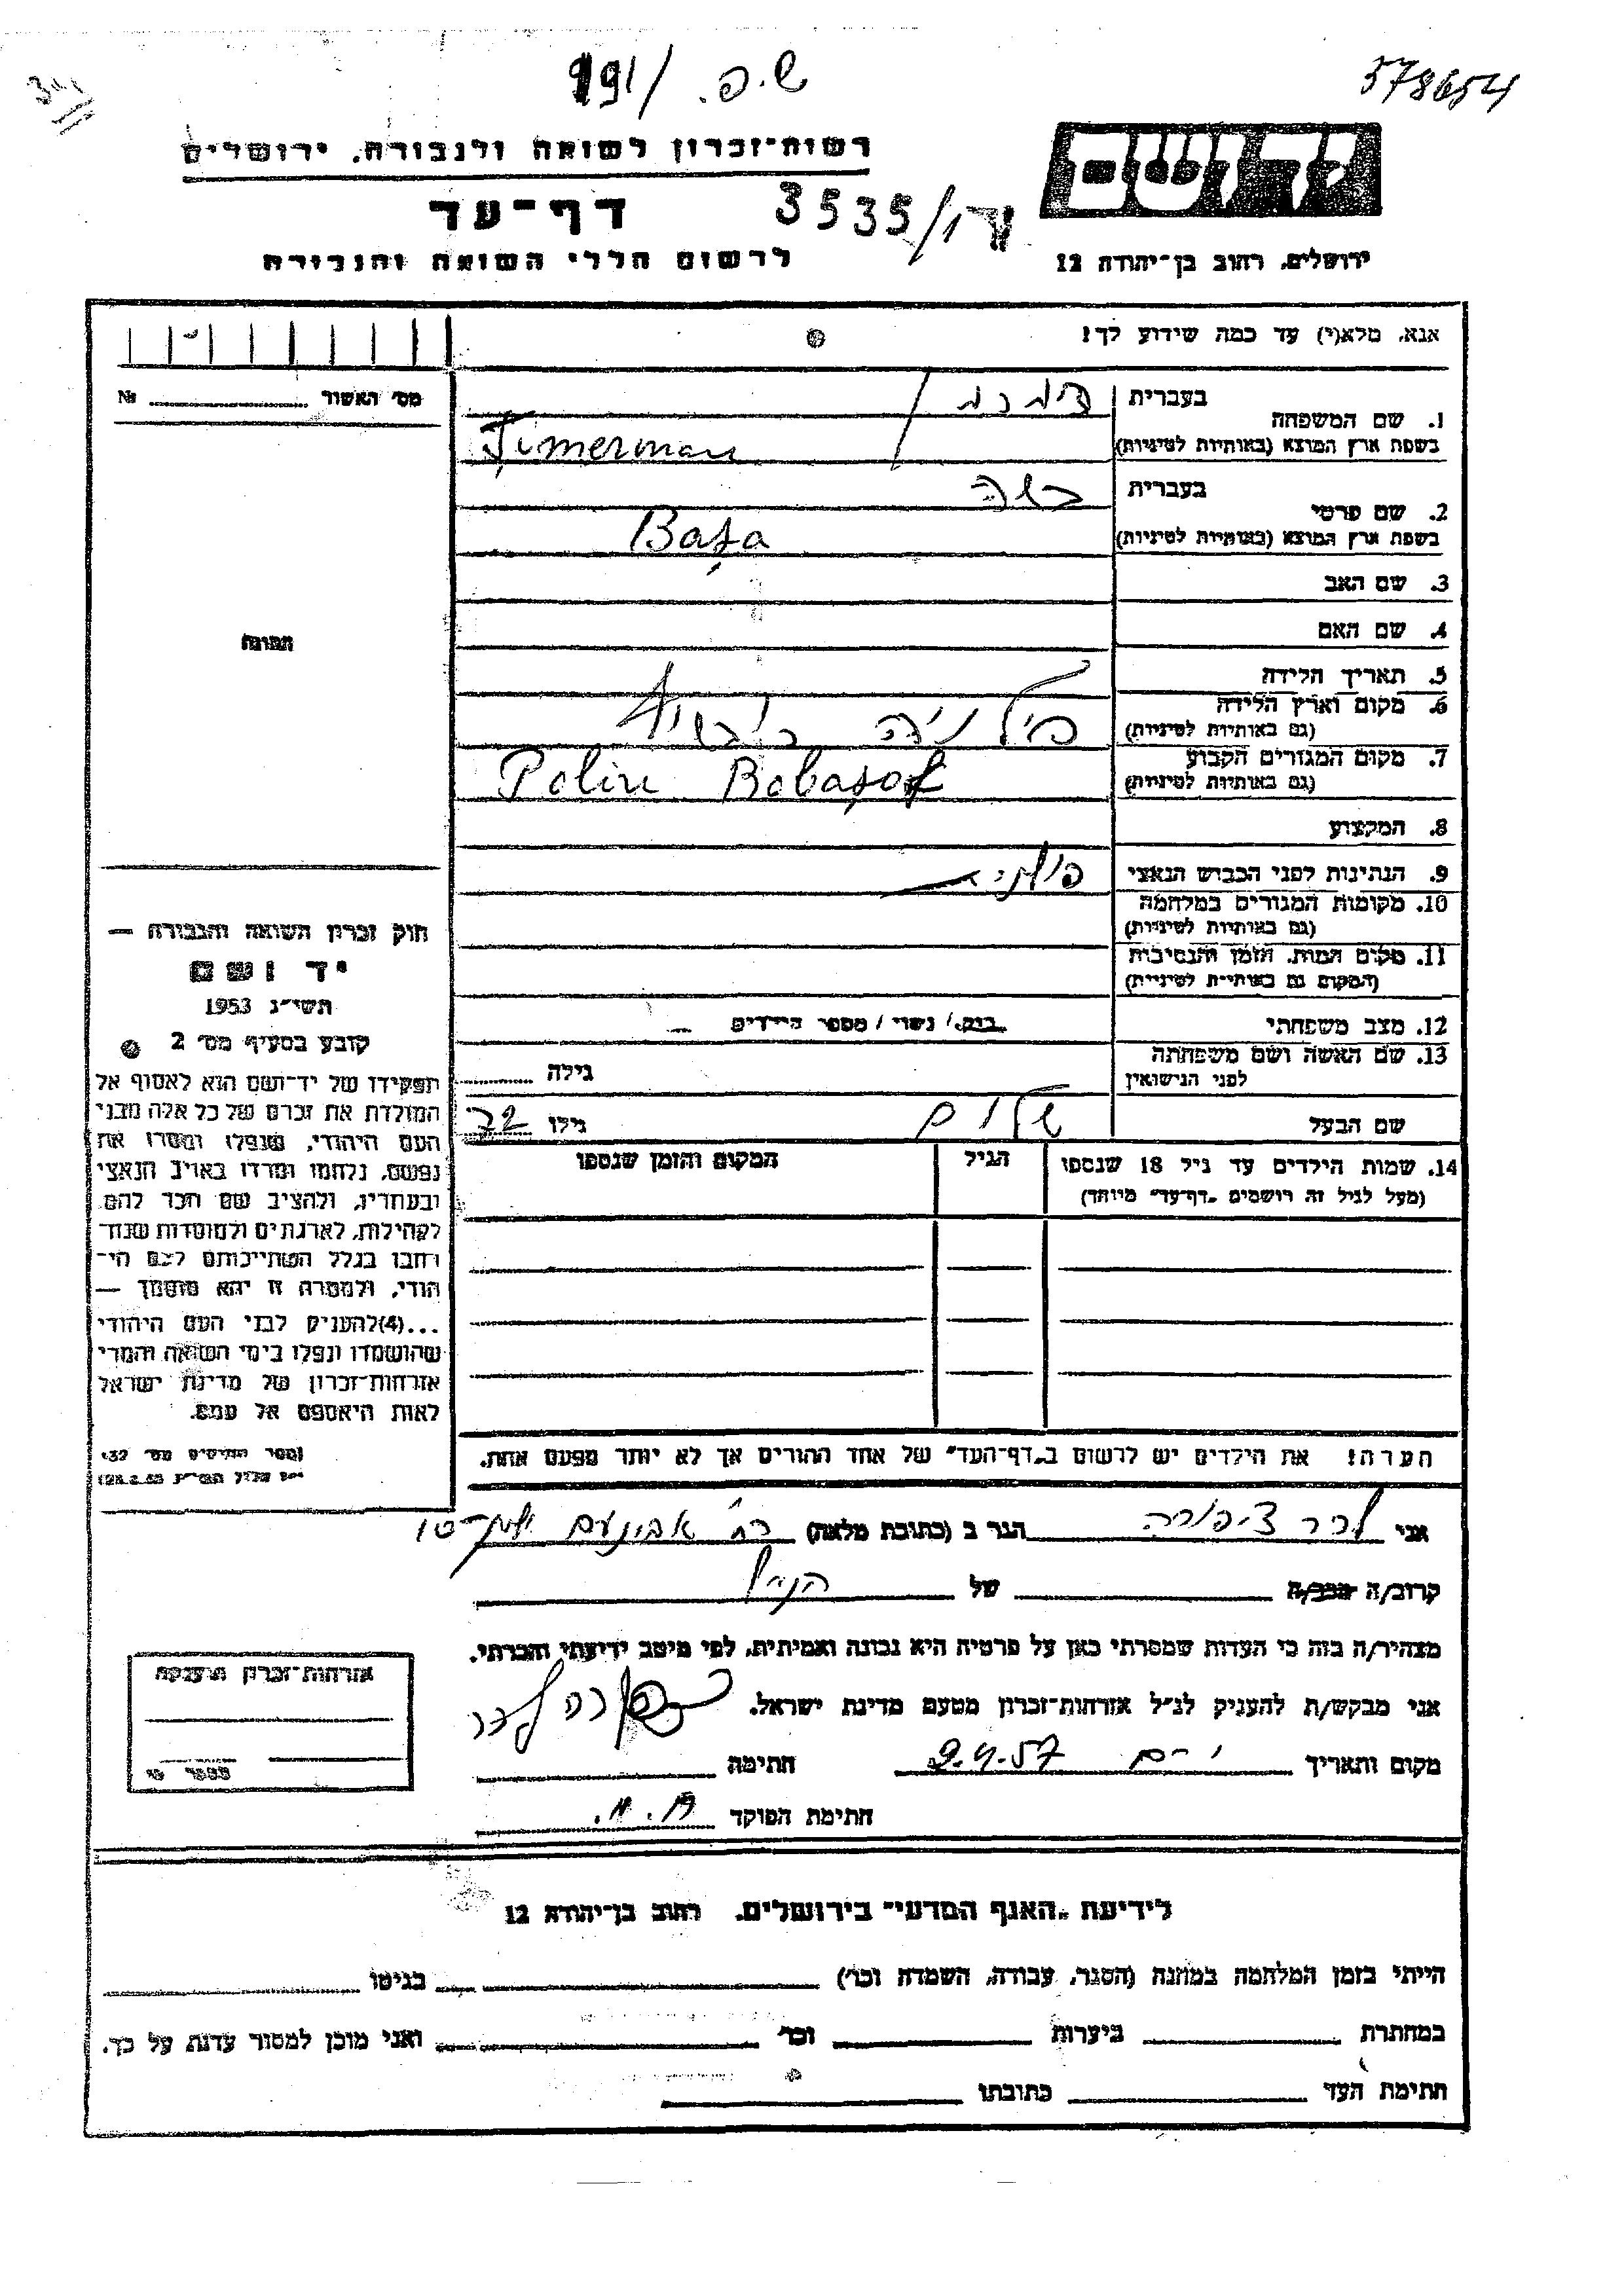 ש.פ. 191/
378654
רשות-זכרון לשואה ולגבורה, ירושלים
דף-עד
3535/
לרשום חללי השואה והגבורה
ירושלים, רחוב בן-יהודה 12
אנא, מלא(י) עד כמה שידוע לך!
מס׳ האשור № 
1. שם המשפחה
בעברית
בשפת ארץ המוצא (באותיות לטיניות) Timerman
2. שם פרטי
בעברית בשה
בשפת ארץ המוצא (באותיות לטיניות) Basa
3. שם האב
4. שם האם
תמונה
5. תאריך הלידה
6. מקום וארץ הלידה
(גם באותיות לטיניות)
7. מקום המגורים הקבוע
(גם באותיות לטיניות) Polin
8. המקצוע
9. הנתינות לפני הכבוש הנאצי
10. מקומות המגורים במלחמה
(גם באותיות לטיניות)
11. מקום המות, הזמן והנסיבות
(המקום גם באותיות לטיניות)
12. מצב משפחתי רווק / נשוי / מספר הילדים
13. שם האשה ושם משפחתה
לפני הנישואין
גילה
שם הבעל שלום גילו 72
14. שמות הילדים עד גיל 18 שנספו
(מעל לגיל זה רושמים "דף-עד" מיוחד)
הגיל
המקום והזמן שנספו
חוק זכרון השואה והגבורה —
יד ושם
תשי״ג 1953
קובע בסעיף מס׳ 2
תפקידו של יד-ושם הוא לאסוף אל
המולדת את זכרם של כל אלה מבני
העם היהודי, שנפלו ומסרו את
נפשם, נלחמו ומרדו באויב הנאצי
ובעוזריו, ולהציב שם וזכר להם,
לקהילות, לארגונים ולמוסדות שנח-
רבו בגלל השתייכותם לעם הי-
הודי, ולמטרה זו יהא מוסמך —
...(4) להעניק לבני העם היהודי
שהושמדו ונפלו בימי השואה והמרי
אזרחות-זכרון של מדינת ישראל
לאות היאספם אל עמם.
(ספר החוקים מס׳ 132
הערה! את הילדים יש לרשום ב"דף-העד" של אחד ההורים אך לא יותר מפעם אחת.
אני לכר ציפורה הגר ב (כתובת מלאה) רח׳ אבינעם ילין 10
קרוב/ה מכר/ה של הנ״ל
מצהיר/ה בזה כי העדות שמסרתי כאן על פרטיה היא נכונה ואמיתית, לפי מיטב ידיעתי והכרתי.
אני מבקש/ת להעניק לנ״ל אזרחות-זכרון מטעם מדינת ישראל.
מקום ותאריך י-ם 9.4.57 חתימה
חתימת הפוקד
אזרחות-זכרון הוענקה
מספר
לידיעת "האגף המדעי" בירושלים, רחוב בן-יהודה 12
הייתי בזמן המלחמה במחנה (הסגר, עבודה, השמדה וכו׳) בגיטו
במחתרת ביערות וכו׳ ואני מוכן למסור עדות על כך.
חתימת העד כתובתו